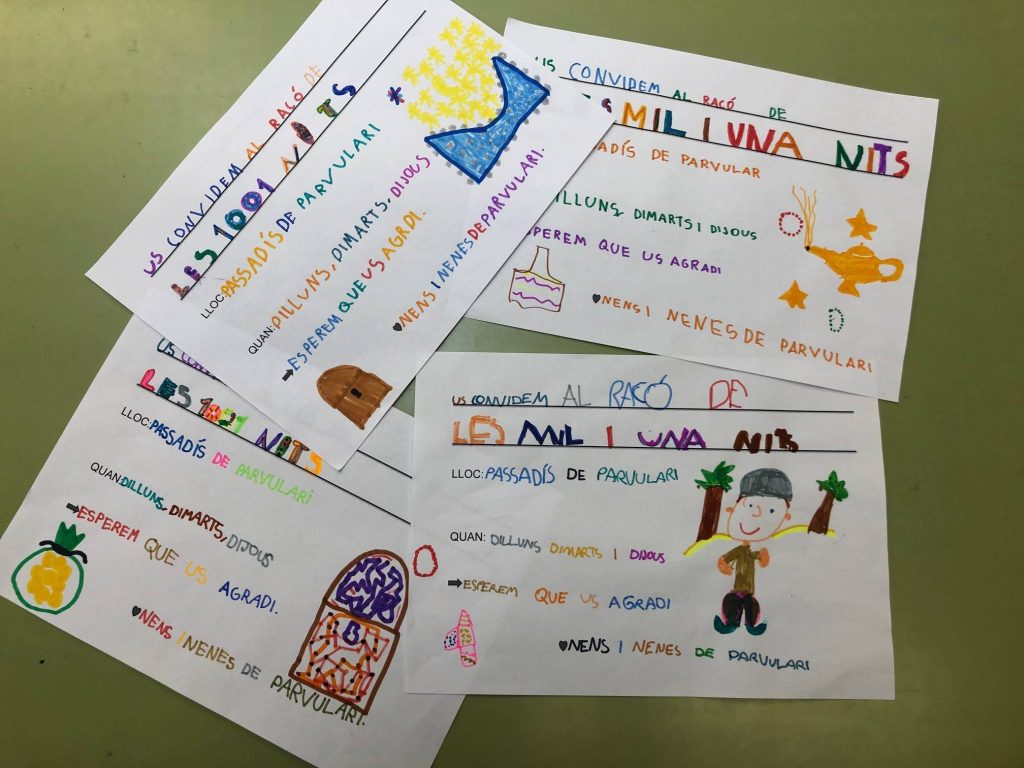 US CONVIDEM AL RACÓ DE
LES 1001 NITS
LLOC:PASSADÍS DE PARVULARI
QUAN:DILLUNS, DIMARTS, DIJOUS
ESPEREM QUE US AGRDI.
NENS I NENES DE PARVULARI.
US CONVIDEM AL RACÓ DE
MIL I UNA NITS
DE PARVULAR
DIMARTS I DIJOUS
QUE US AGRADI
NENS I NENES DE PARVULARI
US
LES 1001 NITS
LLOC:PASSADÍS DE PARVULARI
QUAN:DILLUNS, DIMARTS, DIJOUS
ESPEREM QUE US AGRADI.
NENS I NENES DE PARVULARI.
US CONVIDEM AL RACÓ DE
LES MIL I UNA NITS
LLOC:PASSADÍS DE PARVULARI
QUAN: DILLUNS DIMARTS I DIJOUS
ESPEREM QUE US AGRADI
NENS I NENES DE PARVULARI